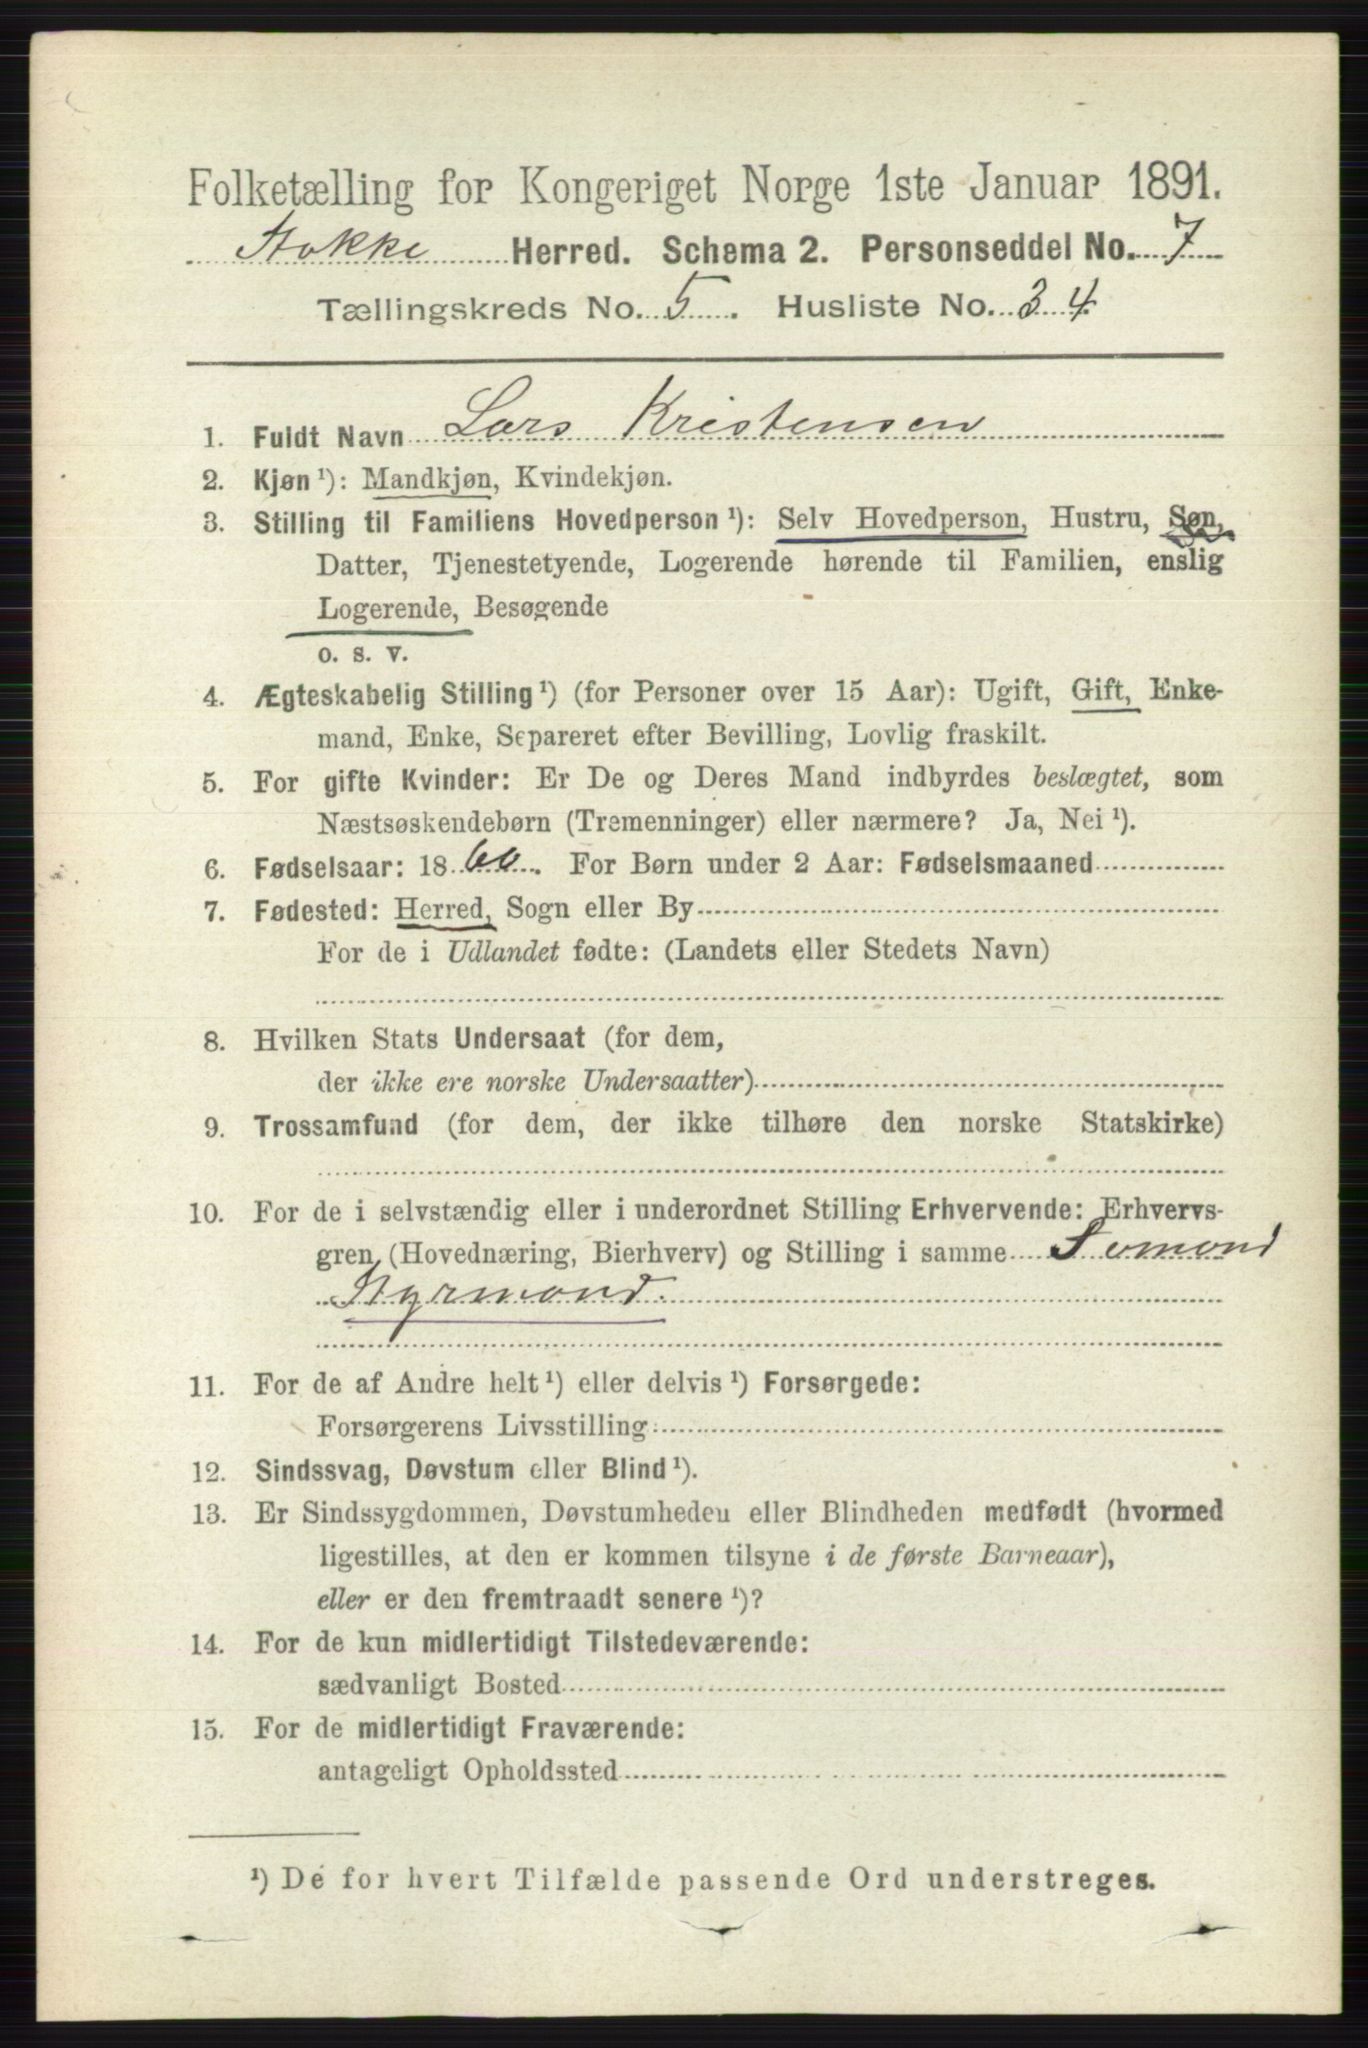 Folketælling for Kongeriget Norge 1ste Januar 1891.
Stokke Herred. Schema 2. Personseddel No. 7
Tællingskreds No. 5. Husliste No. 34.
1. Fuldt Navn Lars Kristensen
2. Kjøn ¹): Mandkjøn, Kvindekjøn.
3. Stilling til Familiens Hovedperson ¹): Selv Hovedperson, Hustru, Søn,
Datter, Tjenestetyende, Logerende hørende til Familien, enslig
Logerende, Besøgende
o. s. v.
4. Ægteskabelig Stilling ¹) (for Personer over 15 Aar): Ugift, Gift, Enke-
mand, Enke, Separeret efter Bevilling, Lovlig fraskilt.
5. For gifte Kvinder: Er De og Deres Mand indbyrdes beslægtet, som
Næstsøskendebørn (Tremenninger) eller nærmere? Ja, Nei ¹).
6. Fødselsaar: 1866. For Børn under 2 Aar: Fødselsmaaned
7. Fødested: Herred, Sogn eller By
For de i Udlandet fødte: (Landets eller Stedets Navn)
8. Hvilken Stats Undersaat (for dem,
der ikke ere norske Undersaatter)
9. Trossamfund (for dem, der ikke tilhøre den norske Statskirke)
10. For de i selvstændig eller i underordnet Stilling Erhvervende: Erhvervs-
gren (Hovednæring, Bierhverv) og Stilling i samme Sømand
Styrmand.
11. For de af Andre helt ¹) eller delvis ¹) Forsørgede:
Forsørgerens Livsstilling
12. Sindssvag, Døvstum eller Blind ¹).
13. Er Sindssygdommen, Døvstumheden eller Blindheden medfødt (hvormed
ligestilles, at den er kommen tilsyne i de første Barneaar),
eller er den fremtraadt senere ¹)?
14. For de kun midlertidigt Tilstedeværende:
sædvanligt Bosted
15. For de midlertidigt Fraværende:
antageligt Opholdssted
¹) De for hvert Tilfælde passende Ord understreges.